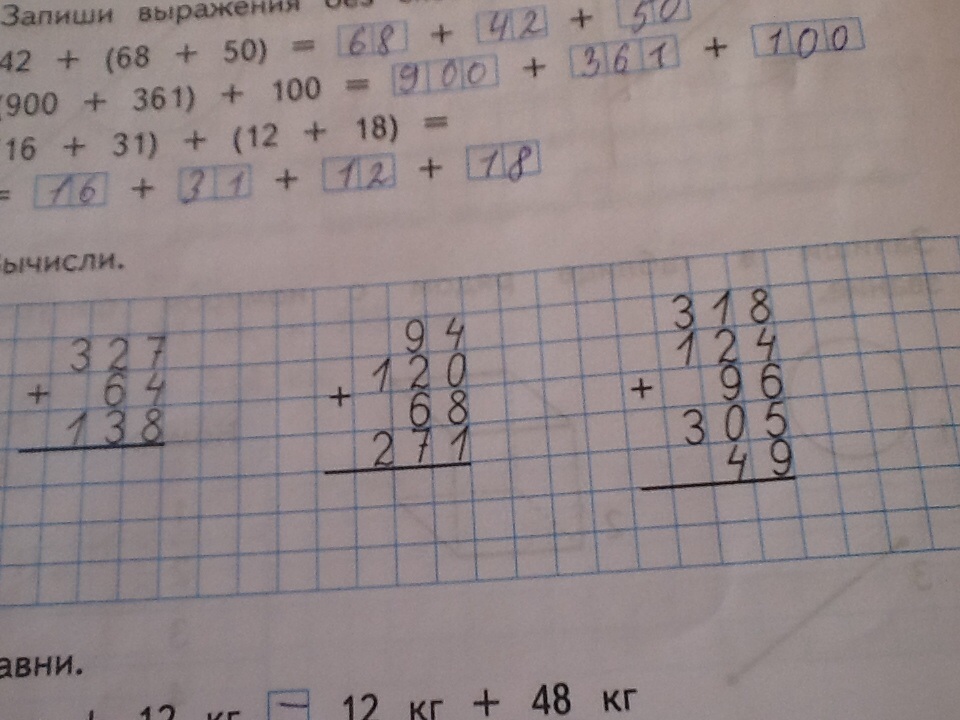 Запиши выражения без
42 + (68 + 50) = 68 + 42 + 50
(900 + 361) + 100 = 900 + 361 + 100
16 + 31) + (12 + 18) =
= 16 + 31 + 12 + 18
ычисли.
327
+ 64
138
94
120
+ 68
271
318
124
+ 96
305
49
авни.
+ 12 кг = 12 кг + 48 кг